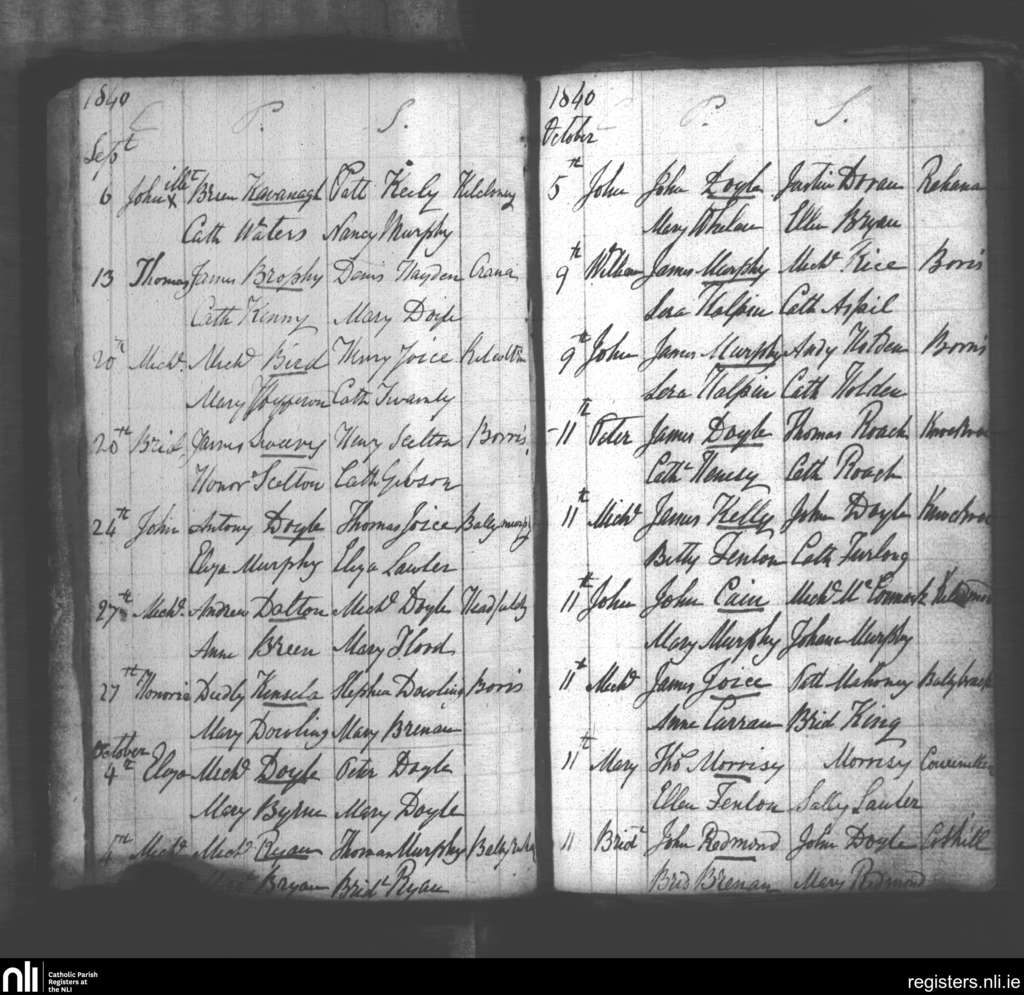 1840
C P. S.
Sept
6 John illt Brien Kavanagh Patt Keily Kilcloney
Cath Waters Nancy Murphy
13 Thomas James Brophy Denis Hayden Crana
Cath Kenny Mary Doyle
20th Michl. Michl Bird Henry Joice
Mary Cath Twamly
20th Brid James Sweeny Henry Scelton Borris
Honor Scelton Cath Gibson
24th John Antony Doyle Thomas Joice Ballymurphy
Eliza Murphy Eliza Lawler
27th Michl. Andrew Dalton Michl Doyle
Anne Breen Mary Flood
27th Honoria Dudly Kinsela Stephen Dowling Boris
Mary Dowling Mary Brenan
October
4th Eliza Michl Doyle Peter Doyle
Mary Byrne Mary Doyle
4th Michl Michl Ryan Thomas Murphy
Bryan Bridt Ryan
1840
P. S.
October
5th John John Doyle Justin Doran Rahana
Mary Whelan Ellen Bryan
9th William James Murphy Michl Rice Boris
Sera Halpin Cath Aspil
9th John James Murphy Andy Holden Borris
Sera Halpin Cath Holden
11th Peter James Doyle Thomas Roach
Cath Henesy Cath Roach
11th Michl James Kelly John Doyle
Betty Fenlon Cath Furlong
11th John John Cain Michl
Mary Murphy Johana Murphy
11th Michl James Joice Patt Mahoney
Anne Curran Brid King
11th Mary Thos Morrisy Morrisy
Ellen Fenlon Sally Lawler
11 Bridt John Redmond John Doyle
Brid Brenan Mary Redmond
nli Catholic Parish
Registers at
the NLI
registers.nli.ie